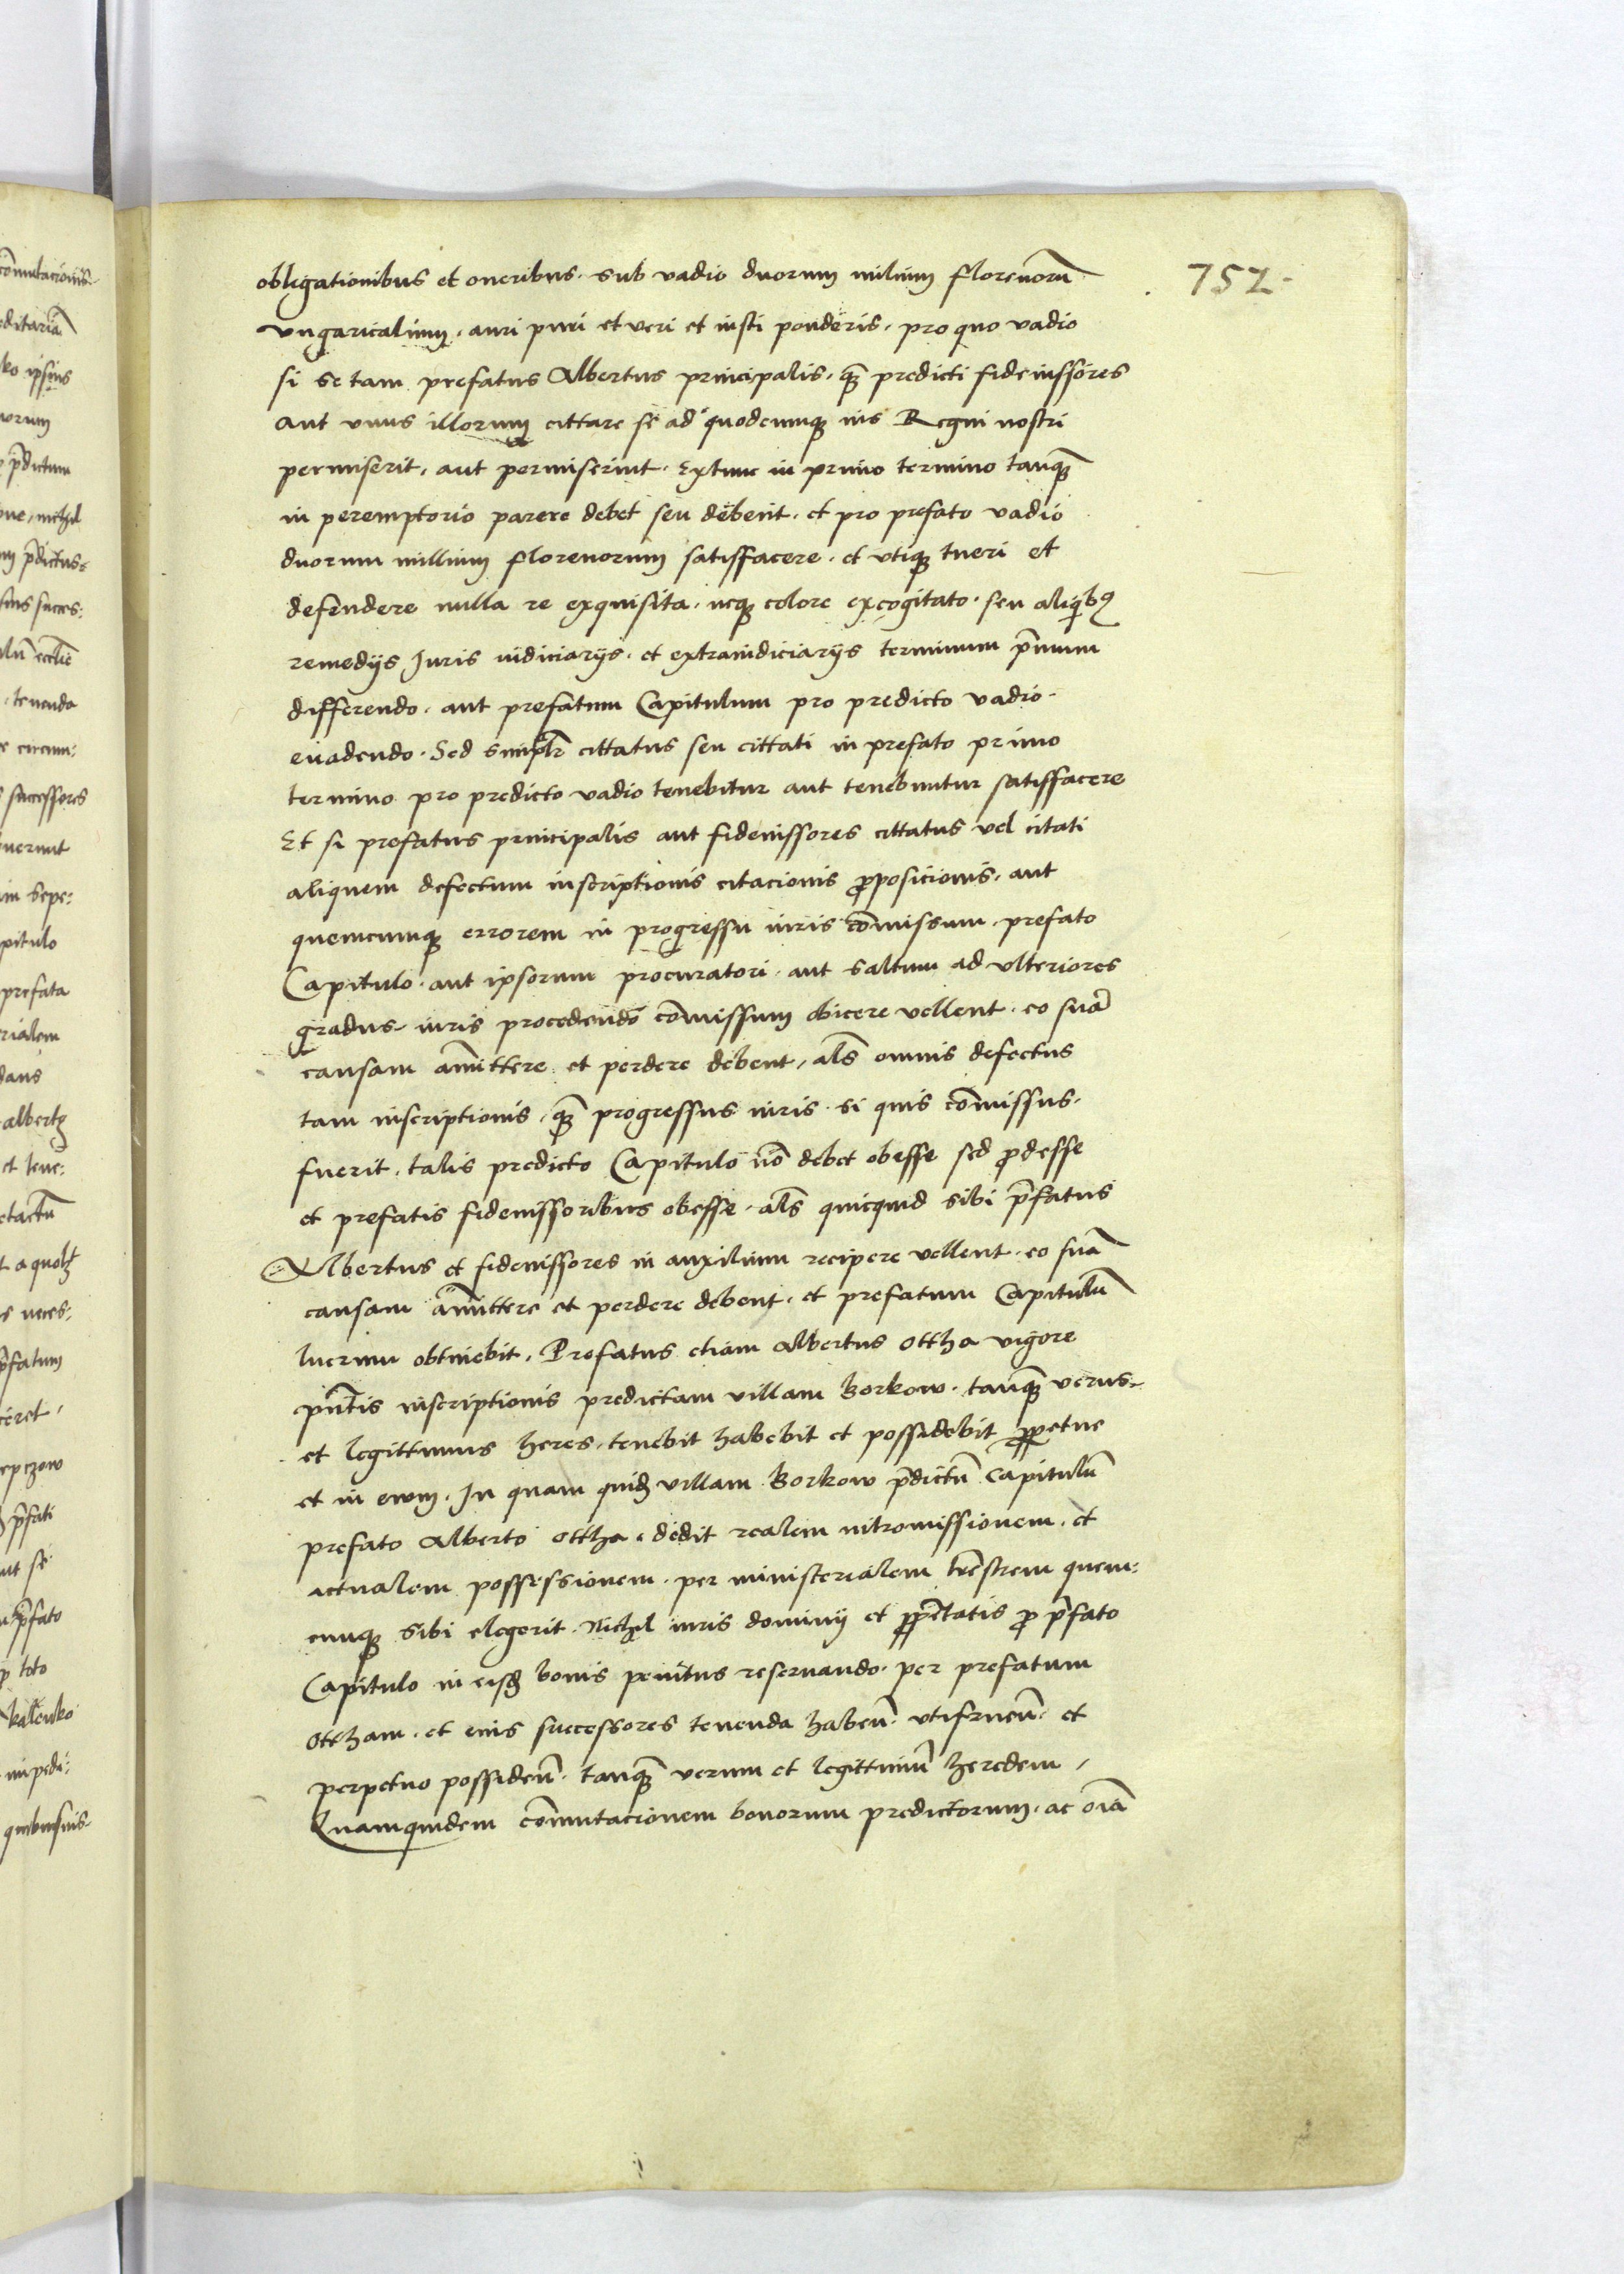 752
obligationibus et oneribus. sub vadio duorum milium florenorū
vngaricalium. auri puri et veri et iusti ponderis. pro quo vadio
si se tam prefatus Albertus principalis. quā predicti fideiussores
aut vnus illorum cittare se ad quodcumque ius Regni nostri
permiserit, aut permiserint. Extunc in primo termino tanquā
in peremptorio parere debet seu debent. et pro prefato vadio
duorum millium florenorum satisfacere. et vtique tueri et
defendere nulla re exquisita. neque colore excogitato. seu aliqibꝰ
remedijs Juris iudiciarijs. et extraiudiciarijs terminum p̄mum
differendo. aut prefatum Capitulum pro predicto vadio.
euadendo. Sed simplr̄ cittatus seu cittati in prefato primo
termino pro predicto vadio tenebitur aut tenebuntur satisfacere
Et si prefatus principalis aut fideiussores cittatus vel citati
aliquem defectum inscriptionis citacionis ꝓposicionis. aut
quemcumque errorem in progressu iuris cōmissum. prefato
Capitulo. aut ipsorum procuratori. aut saltum ad vlteriores
gradus. iuris procedendō cōmissum obicere vellent. eo suā
causam āmittere et perdere debent, als̄ omnis defectus
tam inscriptionis. quā progressus iuris. si quis cōmissus.
fuerit. talis predicto Capitulo nō debet obesse sed ꝓdesse
et prefatis fideiussoribus obesse. als̄ quicquid sibi p̄fatus
Albertus et fideiussores in auxilium recipere vellent. eo suā
causam āmittere et perdere debent. et prefatum Capitulū
lucrum obtinebit. Prefatus etiam Albertus Ottha vigore
pn̄tis inscriptionis predictam villam Borkow. tanquā verus
et legittimus heres. tenebit habebit et possidebit ꝑpetue
et in ewm. In quam quidꝫ villam Borkow p̄dictū Capitulū
prefato Alberto Ottha. dedit realem intromissionem. et
actualem possessionem. per ministerialem tr̄estrem quem:
cumque sibi elegerit. Nichil iuris dominij et ꝓpr̄etatis ꝓ p̄fato
Capitulo in eisdꝫ bonis penitus reseruando. per prefatum
Ottham. et eius successores tenenda haben̄. vtifruen̄. et
perpetuo possiden̄. tanquā verum et legittimū heredem,
Quamquidem cōmutacionem bonorum predictorum. ac oīa